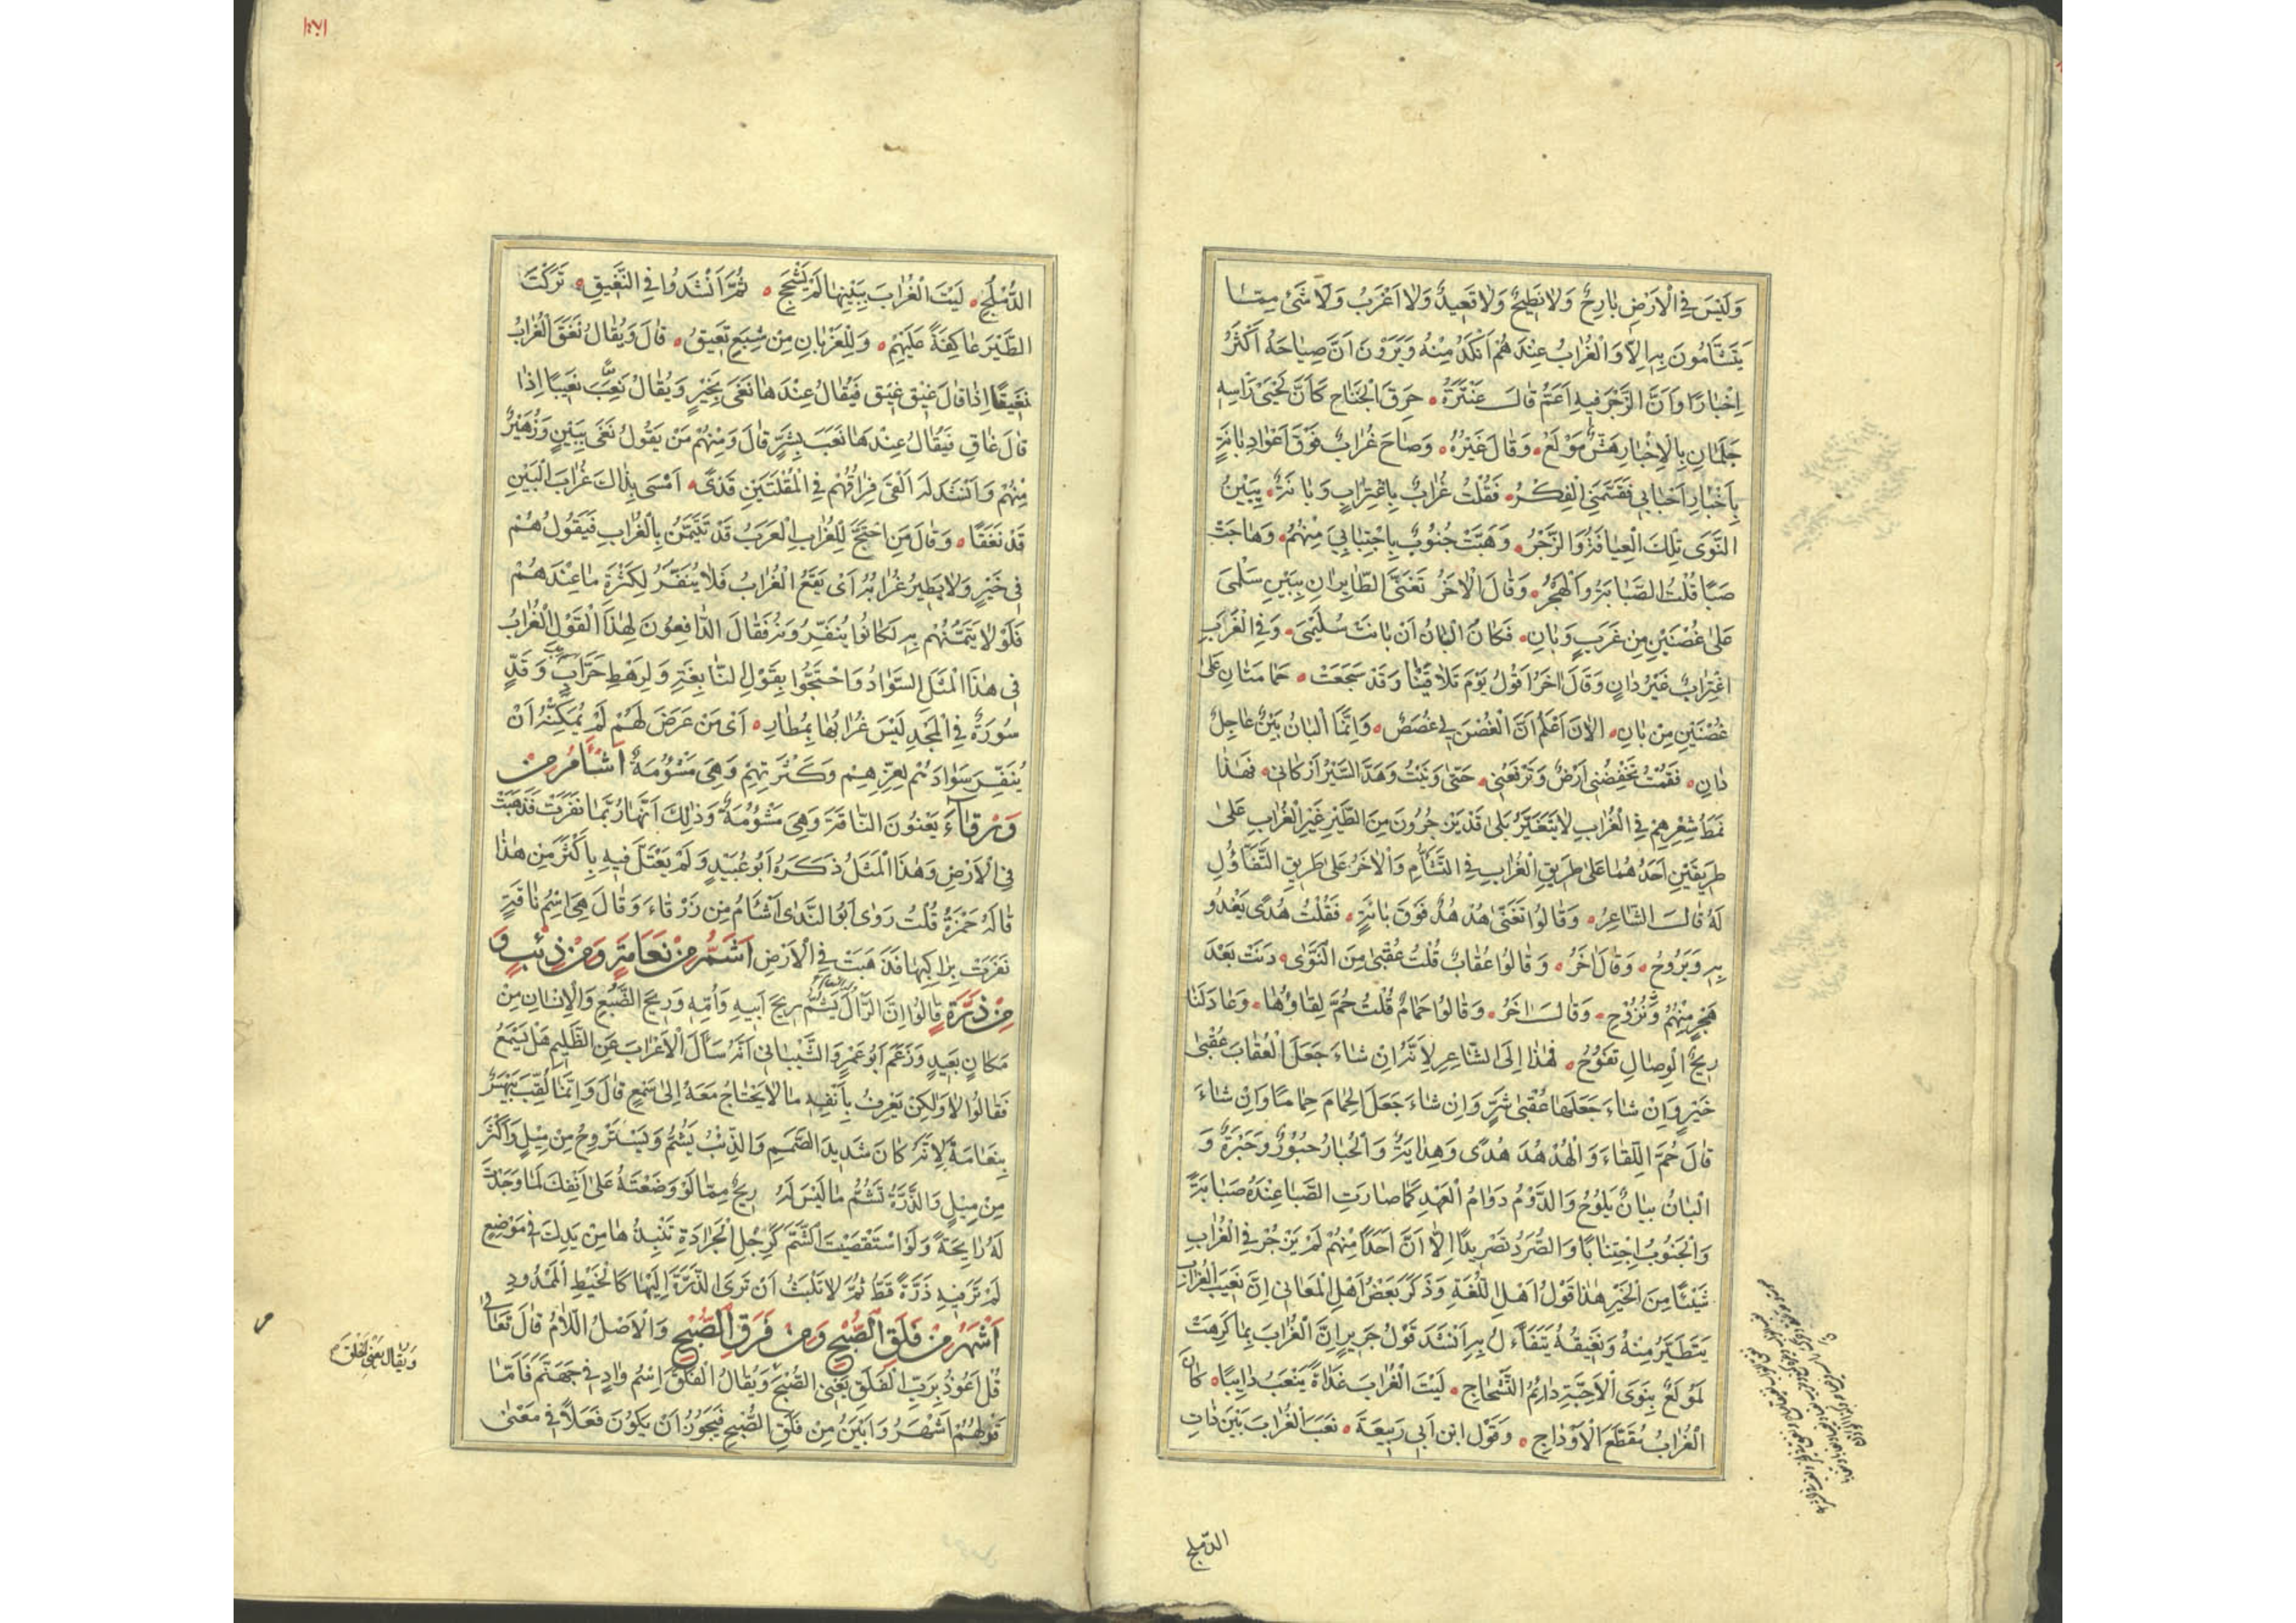 وَلَيْسَ فِي الْاَرْضِ بَارِحٌ وَلَا نَطِيحٌ وَلَا قَعِيدٌ وَلَا اَعْرَبُ وَلَا شَئٌ مِمَّا
يَتَشَأَّمُونَ بِهِ اِلَّا وَالْغُرَابُ عِنْدَهُمْ اَنْكَدُ مِنْهُ وَيَرَوْنَ اَنَّ صِيَاحَهُ اَكْثَرُ
اِخْبَارًا وَاَنَّ الزَّجْرَ فِيهِ اَعَمُّ قَالَ عَنْتَرَةُ حَرِقَ الْجَنَاحِ كَأَنَّ لَحْيَىْ رَاْسِهِ
جَلَمَانِ بِالْاِخْبَارِ هَشٌّ مَوْلَعُ وَقَالَ غَيْرُهُ وَصَاحَ غُرَابٌ فَوْقَ اَعْوَادِ بَانَةٍ
بِاَخْبَارِ اَحْبَابِي فَقَسَّمَنِي الْفِكْرُ فَقُلْتُ غُرَابٌ بِاغْتِرَابٍ وَبَانَةٌ بِبَيْنِ
النَّوَى تِلْكَ الْعِيَافَةُ وَالزَّجْرُ وَهَبَّتْ جَنُوبٌ بِاجْتِنَابِيَ مِنْهُمُ وَهَاجَتْ
صَبًا قُلْتُ الصَّبَابَةُ وَالْهَجْرُ وَقَالَ الْاخَرُ تَغَنَّى الطَّايِرَانِ بِبَيْنِ سَلْمَى
عَلَى غُصْنَيْنِ مِنْ غَرَبٍ وَبَانِ فَكَانَ الْبَانُ اَنْ بَانَتْ سُلَيْمَى وَفِي الْغَرَبِ
اغْتِرَابٌ غَيْرُ دَانِ وَقَالَ اخَرُ اَقُولُ يَوْمَ تَلَاقَيْنَا وَقَدْ سَجَعَتْ حَمَامَتَانِ عَلَى
غُصْنَيْنِ مِنْ بَانِ الْانَ اَعْلَمُ اَنَّ الْغُصْنَ لِي غُصَصٌ وَاِنَّمَا الْبَانُ بَيْنٌ عَاجِلٌ
دَانِ فَقُمْتُ تَخْفِضُنِي اَرْضٌ وَتَرْفَعُنِي حَتَّى وَنَيْتُ وَهَدَّ السَّيْرُ اَرْكَانِي فَهٰذَا
نَمَطُ شِعْرِهِمْ فِي الْغُرَابِ لَا يَتَغَيَّرُ بَلَى قَدْ يَزْجُرُونَ مِنَ الطَّيْرِ غَيْرَ الْغُرَابِ عَلَى
طَرِيقَيْنِ اَحَدُهُمَا عَلَى طَرِيقِ الْغُرَابِ فِي التَّشَأُّمِ وَالْاخَرُ عَلَى طَرِيقِ التَّفَاؤُلِ
لَهُ قَالَ الشَّاعِرُ وَقَالُوا تَغَنَّى هُدْهُدٌ فَوْقَ بَانَةٍ فَقُلْتُ هُدًى يَغْدُو
بِهِ وَيَرُوحُ وَقَالَ اخَرُ وَقَالُوا عُقَابٌ قُلْتُ عُقْبَى مِنَ النَّوَى دَنَتْ بَعْدَ
هَجْرٍ مِنْهُمُ وَنُزُوحِ وَقَالَ اخَرُ وَقَالُوا حَمَامٌ قُلْتُ حُمَّ لِقَاؤُهَا وَعَادَ لَنَا
رِيحُ الْوِصَالِ تَفُوحُ فَهٰذَا اِلَى الشَّاعِرِ لِاَنَّهُ اِنْ شَاءَ جَعَلَ الْعُقَابَ عُقْبَى
خَيْرٍ وَاِنْ شَاءَ جَعَلَهَا عُقْبَى شَرٍّ وَاِنْ شَاءَ جَعَلَ الْحَمَامَ حِمَامًا وَاِنْ شَاءَ
قَالَ حُمَّ اللِّقَاءُ وَالْهُدْهُدَ هُدًى وَهِدَايَةً وَالْحُبَارَ حُبُورٌ وَحَبْرَةٌ وَ
الْبَانُ بَيَانٌ يَلُوحُ وَالدَّوْمُ دَوَامُ الْعَهْدِ كَمَا صَارَتِ الصَّبَا عِنْدَهُ صَبَابَةً
وَالْجَنُوبُ اِجْتِنَابًا وَالصُّرَدُ تَصْرِيدًا اِلَّا اَنَّ اَحَدًا مِنْهُمْ لَمْ يَزْجُرْ فِي الْغُرَابِ
شَيْئًا مِنَ الْخَيْرِ هٰذَا قَوْلُ اَهْلِ اللُّغَةِ وَذَكَرَ بَعْضُ اَهْلِ الْمَعَانِي اِنَّ نَعِيبَ الْغُرَابِ
يَتَطَيَّرُ مِنْهُ وَنَغِيقُهُ يَتَفَأَّلُ بِهِ اَنْشَدَ قَوْلُ جَرِيرٍ اِنَّ الْغُرَابَ بِمَا كَرِهْتَ
لَمُوَلَعٌ بِنَوَى الْاَحِبَّةِ دَائِمُ التَّشْحَاجِ لَيْتَ الْغُرَابَ غَدَاةَ يَنْعَبُ دَايِبًا كَانَ
الْغُرَابُ مُقَطَّعَ الْاَوْدَاجِ وَقَوْلِ ابْنِ اَبِي رَبِيعَةَ نَعَبَ الْغُرَابُ بِبَيْنِ ذَاتِ
الدّملج
١٧١
الدُّمْلُجِ لَيْتَ الْغُرَابَ بِبَيْنِهَا لَمْ يَشْحَجِ ثُمَّ اَنْشَدُوا فِي النَّغِيقِ تَرَكْتَ
الطَّيْرَ عَاكِفَةً عَلَيْهِمْ وَلِلْغِرْبَانِ مِنْ شِبَعٍ نَغِيقُ قَالَ وَيُقَالُ نَغَقَ الْغُرَابُ
نَغِيقًا اِذَا قَالَ غِيْقِ غِيْقِ فَيُقَالُ عِنْدَهَا نَغَقَ بِخَيْرٍ وَيُقَالُ نَعَبَ نَعِيبًا اِذَا
قَالَ غَاقِ فَيُقَالُ عِنْدَهَا نَعَبَ بِشَرٍّ قَالَ وَمِنْهُمْ مَنْ يَقُولُ نَغَقَ بِبَيْنٍ وَزُهَيْرٌ
مِنْهُمْ وَاَنْشَدَ لَهُ اَلْقَى فِرَاقُهُمُ فِي الْمُقْلَتَيْنِ قَذًى اَمْسَى بِذَاكَ غُرَابُ الْبَيْنِ
قَدْ نَغَقَا وَقَالَ مَنِ احْتَجَّ لِلْغُرَابِ الْعَرَبُ قَدْ تَتَيَمَّنُ بِالْغُرَابِ فَيَقُولُ هُمْ
فِي خَيْرٍ وَلَا يَطِيرُ غُرَابُهُ اَىْ يَقَعُ الْغُرَابُ فَلَا يُنَفَّرُ لِكَثْرَةِ مَا عِنْدَهُمْ
فَلَوْلَا تَيَمُّنُهُمْ بِهِ لَكَانُوا يُنَفِّرُونَهُ فَقَالَ الدَّافِعُونَ لِهٰذَا الْقَوْلِ الْغُرَابُ
فِي هٰذَا الْمَثَلِ السَّوَادُ وَاحْتَجُّوا بِقَوْلِ النَّابِغَةِ وَلِرَهْطِ حَرَّابٍ وَقَدٍّ
سُورَةٌ فِي الْمَجْدِ لَيْسَ غُرَابُهَا بِمُطَارِ اَىْ مَنْ عَرَضَ لَهُمْ لَمْ يُمَكِّنْهُ اَنْ
يُنَفِّرَ سَوَادَهُمْ لِعِزِّهِمْ وَكَثْرَتِهِمْ وَهِيَ مَشْؤُمَةٌ اَشْأَمُ مِنْ
وَرْقَاءَ يَعْنُونَ النَّاقَةَ وَهِيَ مَشْؤُمَةٌ وَذٰلِكَ اَنَّهَا رُبَّمَا نَفَرَتْ فَذَهَبَتْ
فِي الْاَرْضِ وَهٰذَا الْمَثَلُ ذَكَرَهُ اَبُو عُبَيْدٍ وَلَمْ يَعْتَلَّ فِيهِ بِاَكْثَرَ مِنْ هٰذَا
قَالَهُ حَمْزَةُ قُلْتُ رَوَى اَبُو النَّدَى اَشْأَمُ مِنْ زَرْقَاءَ وَقَالَ هِيَ اسْمُ نَاقَةٍ
نَفَرَتْ بِرَاكِبِهَا فَذَهَبَتْ فِي الْاَرْضِ اَشَمُّ مِنْ نَعَامَةٍ وَمِنْ ذِئْبٍ وَ
مِنْ ذَرَّةٍ قَالُوا اِنَّ الرَّالَ يَشُمُّ رِيحَ اَبِيهِ وَاُمِّهِ وَرِيحَ الضَّبُعِ وَالْاِنْسَانِ مِنْ
مَكَانٍ بَعِيدٍ وَزَعَمَ اَبُو عَمْرٍو الشَّيْبَانِي اَنَّهُ سَأَلَ الْاَعْرَابَ عَنِ الظَّلِيمِ هَلْ يَسْمَعُ
فَقَالُوا لَا وَلٰكِنْ يَعْرِفُ بِاَنْفِهِ مَا لَا يَحْتَاجُ مَعَهُ اِلَى سَمْعٍ قَالَ وَاِنَّمَا لُقِّبَ بَيْهَسٌ
بِنَعَامَةَ لِاَنَّهُ كَانَ شَدِيدَ الصَّمَمِ وَالذِّئْبُ يَشُمُّ وَيَسْتَرْوِحُ مِنْ مِيْلٍ وَاَكْثَرَ
مِنْ مِيلٍ وَالذَّرَّةُ تَشُمُّ مَا لَيْسَ لَهُ رِيحٌ مِمَّا لَوْ وَضَعْتَهُ عَلَى اَنْفِكَ لَمَا وَجَدْتَ
لَهُ رَايِحَةً وَلَوِ اسْتَقْصَيْتَ الشَّمَّ كَرِجْلِ الْجَرَادَةِ تَنْبِذُهَا مِنْ يَدِكَ فِي مَوْضِعٍ
لَمْ تَرَ فِيهِ ذَرَّةً قَطُّ ثُمَّ لَا تَلْبَثُ اَنْ تَرَى الذَّرَّةَ اِلَيْهَا كَالْخَيْطِ الْمَمْدُودِ
اَشْهَرُ مِنْ فَلَقِ الصُّبْحِ وَمِنْ فَرَقِ الصُّبْحِ وَالْاَصْلُ اللَّامُ قَالَ تَعَالَى
قُلْ اَعُوذُ بِرَبِّ الْفَلَقِ يَعْنِي الصُّبْحَ وَيُقَالُ الْفَلَقُ اسْمُ وَادٍ فِي جَهَنَّمَ فَاَمَّا
قَوْلُهُمْ اَشْهَرُ وَاَبْيَنُ مِنْ فَلَقِ الصُّبْحِ فَيَجُوزُ اَنْ يَكُونَ فَعَلًا فِي مَعْنَى
وَيُقَالُ يَعْنِي الْخَلْقَ